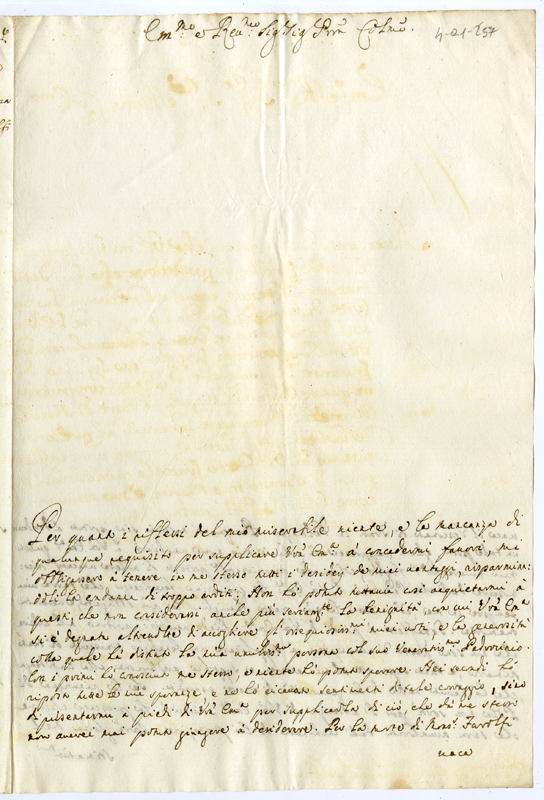 Em.mo e Rev.mo Sig.r Sig.r Pron Colmo.
4-01-257
Per quanto i riflessi del mio miserabile niente, e la mancanza di
qualunque requisito per supplicare Vra Em.a à concedermi favori, mi
obbligassero à tenere in me stesso tutti i desiderj de miei vantaggi, risparmian:
doli la condanna di troppo arditi; Non hò potuto tuttavia così acquietarmi à
questi, che non considerassi anche più seriamte la benignità, con cui Vra Em.a
si è degnata altre volte di accogliere gl'ossequiosissmi miei voti, e la generosità
colla quale hà distinto la mia umilissma persona col suo Veneratissmo Padrocinio.
Con i primi hò conosciuto me stesso, e niente hò potuto sperare. Nei secondi hò
riposto tutte le mie speranze, e ne hò ricavato sentimenti di tale coraggio, sino
di presentarmi à piedi di Vra Em.a per supplicarla di ciò, che di me stesso
non averei mai potuto giungere à desiderare. Per la morte di Mons.r
vaca